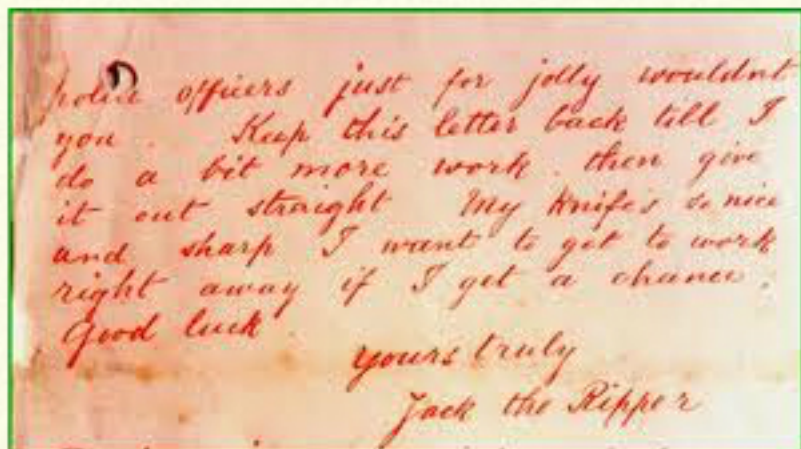 police officers just for jolly wouldnt
you. Keep this letter back till I
do a bit more work. then give
it out straight My knife's so nice
and sharp I want to get to work
right away if I get a chance.
Good luck.
yours truly
Jack the Ripper